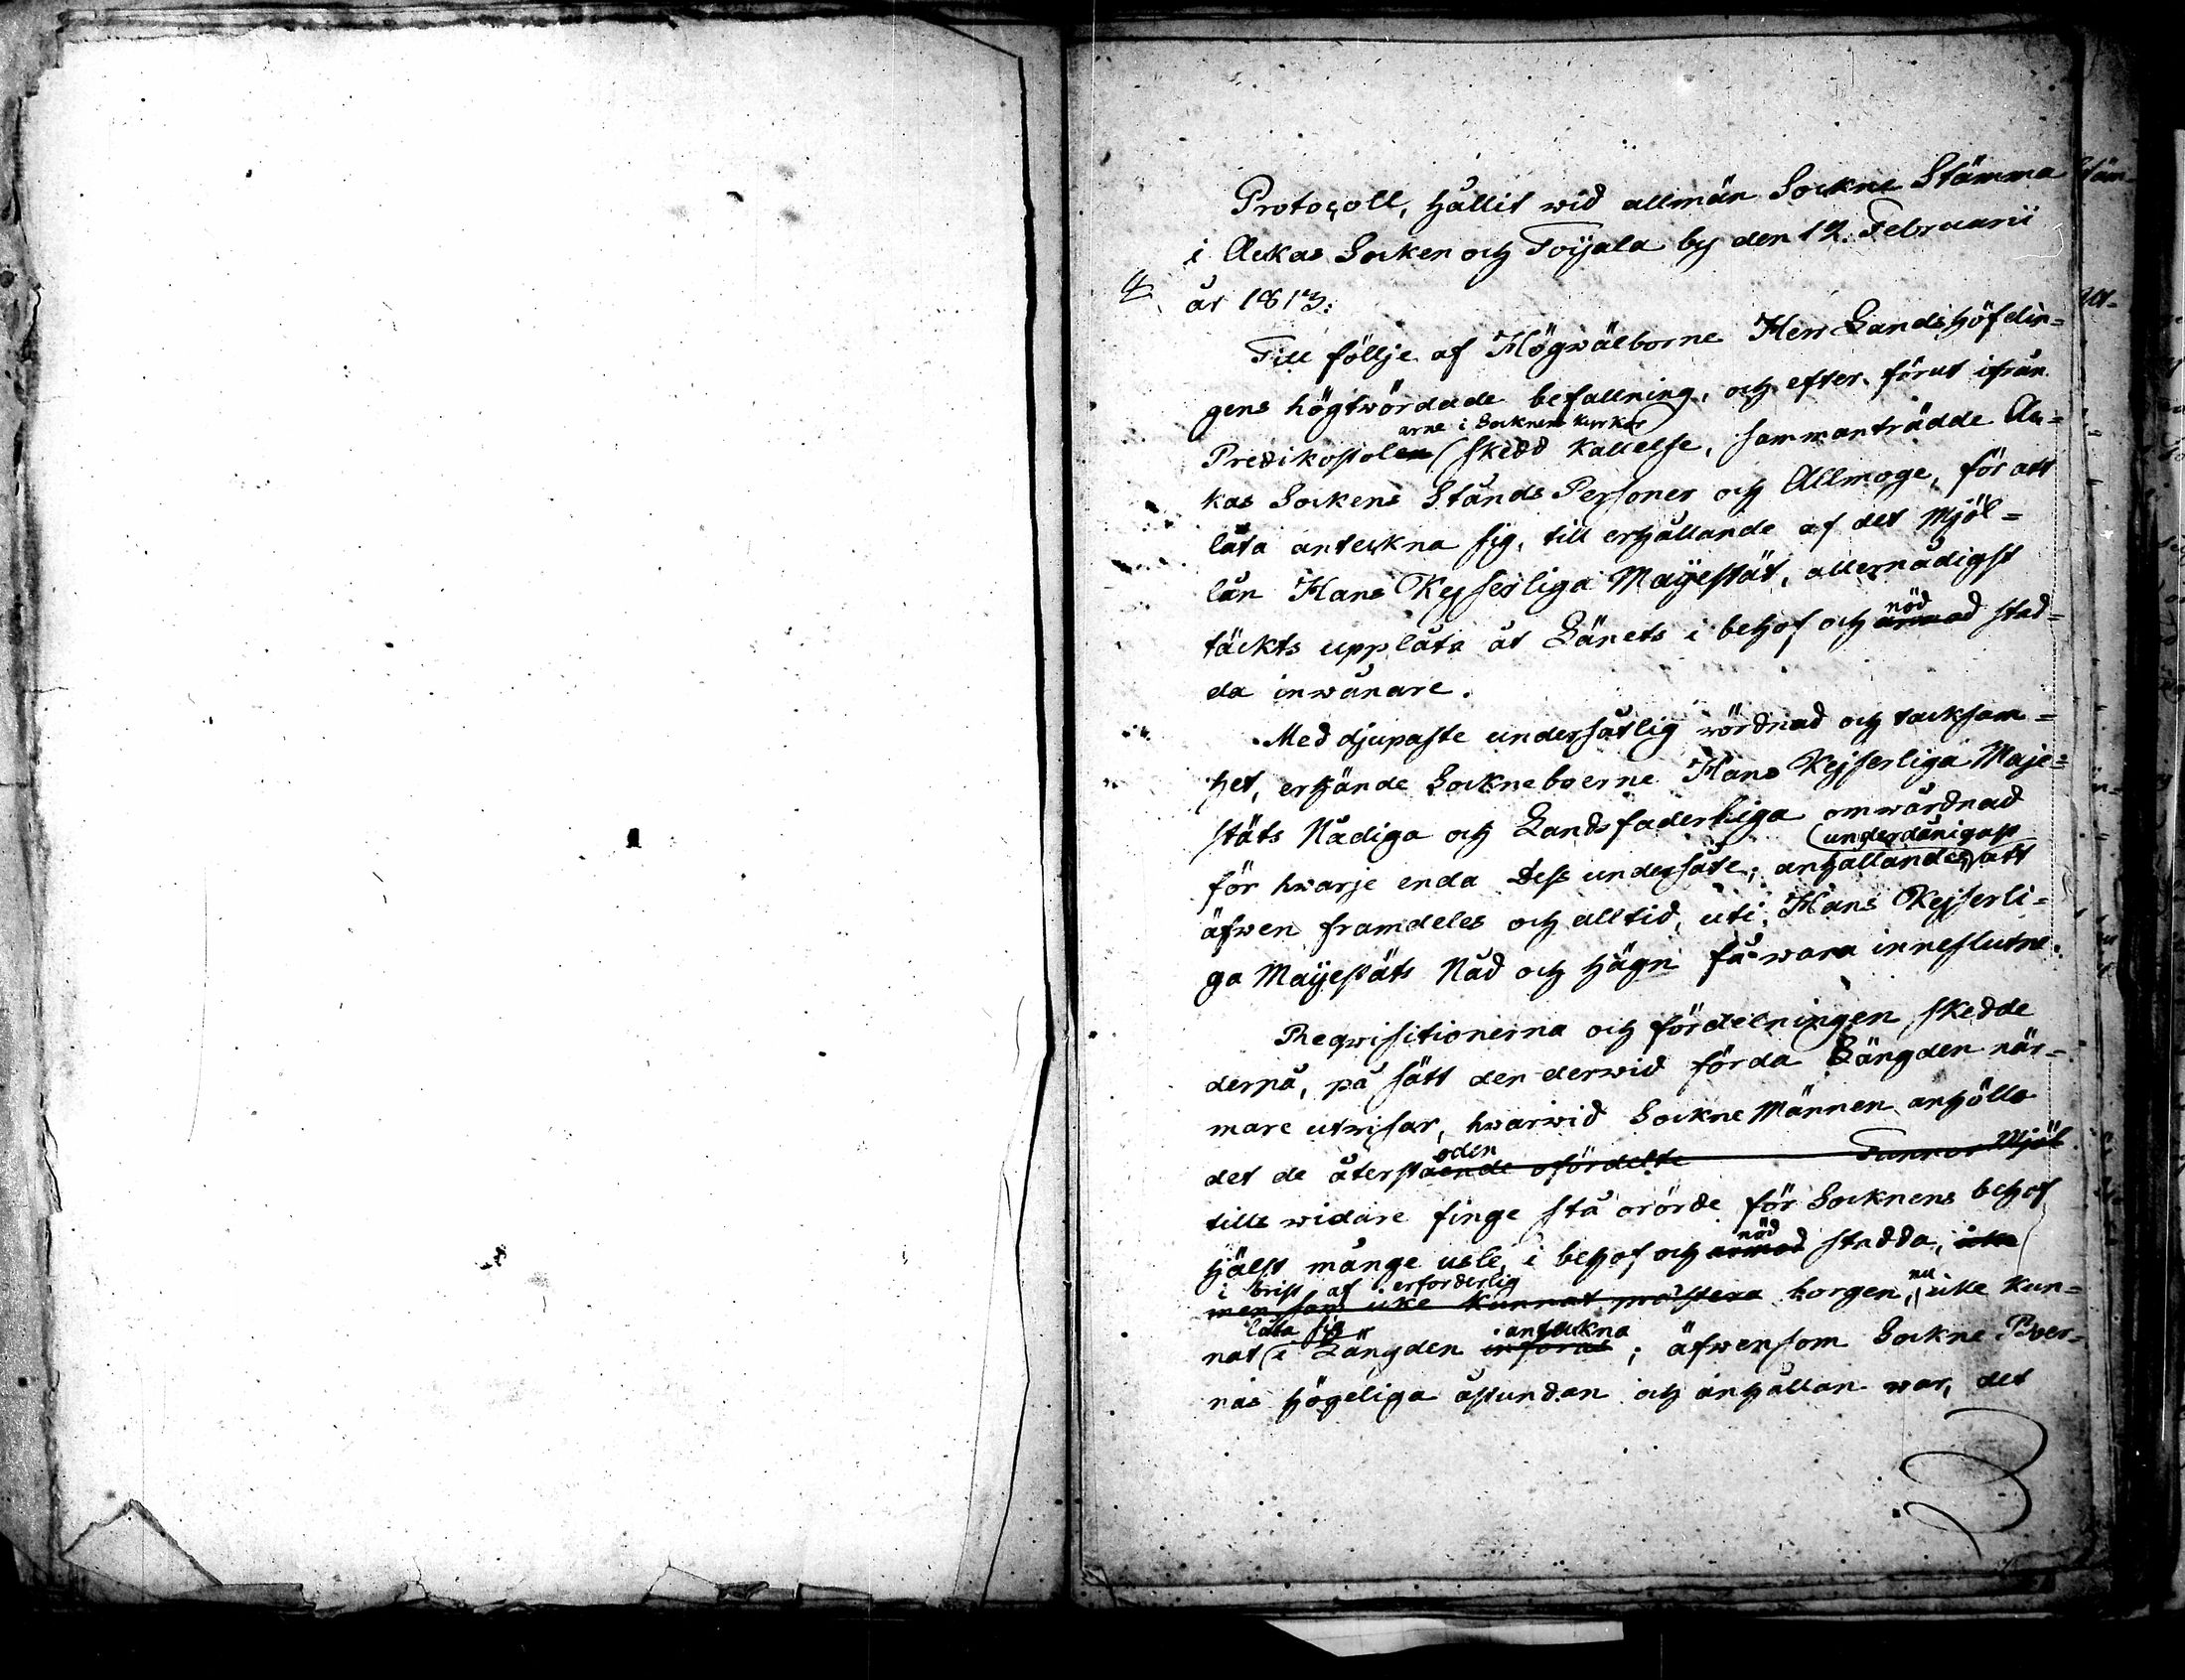 Protocoll, hållit wid allmän Sockne Stämma
i Ackas Socken och Toijala by den 12. Februarii
år 1813:
Till föllje af Högwälborne Herr Landshöfdin=
gens högtwördade befallning, och efter förut ifrån
arne i Socknens kyrkor
Predikostolen skedd kallelse, sammanträdde Ac=
kas Sockens Stånds Personer och Allmoge, för att
låta anteckna sig, till erhållande af det Mjöl=
lån Hans Kejserliga Maijestät, allernådigst
nöd
täckts upplåta åt Länets i behof och armod stad=
da inwånare.
Med djupaste undersåtlig wördnad och tacksam=
het, erkände Sockneboerne Hans Kejserliga Maje=
stäts Nådiga och Landsfaderliga omwårdnad
underdånigast
för hwarje enda Dess undersåte; anhållandes, att
äfwen framdeles och alltid, uti Hans Kejserli=
ga Maijestäts Nåd och hägn få wara inneslutne.
Reqwisitionerna och fördelningen skedde
derpå, på sätt den derwid förda Längden när=
mare utwisar, hwarwid Sockne Männen anhöllo
oden
det de återstående ofördelte Tunnor Mjöl
tills widare finge stå orörde för Socknens behof
nöd
hälst månge usle, i behof och armod stadda, icke
i brist af erforderlig
men som icke kunnat præstera borgen, nu icke kun=
låta sig anteckna
nat i Längden införas; äfwensom Sockne Boer=
nas högeliga åstundan och anhållan war, det